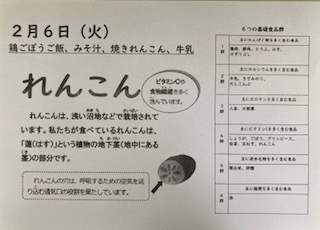 ２月６日（火）
鶏ごぼうご飯、みそ汁、焼きれんこん、牛乳
れんこん
ビタミンCや
食物繊維を多く
含んでいます。
れんこんは、浅い沼地などで栽培されて
います。私たちが食べているれんこんは、
「蓮（はす）」という植物の地下茎（地中にある
茎）の部分です。
れんこんの穴は、呼吸するための空気を送
り込む通気口の役割を果たしています。
６つの基礎食品群
主にたんぱく質を多く含む食品
１群
鶏肉、豚肉、とうふ、みそ、
主にカルシウムを多く含む食品
２群
牛乳、
主にカロテンを多く含む食品
３群
人参、
主にビタミンCを多く含む食品
４群
しょうが、ごぼう、グリンピース、
白菜、玉ねぎ、れんこん
主に炭水化物を多く含む食品
５群
精白米、砂糖
主に脂質を多く含む食品
６群
油